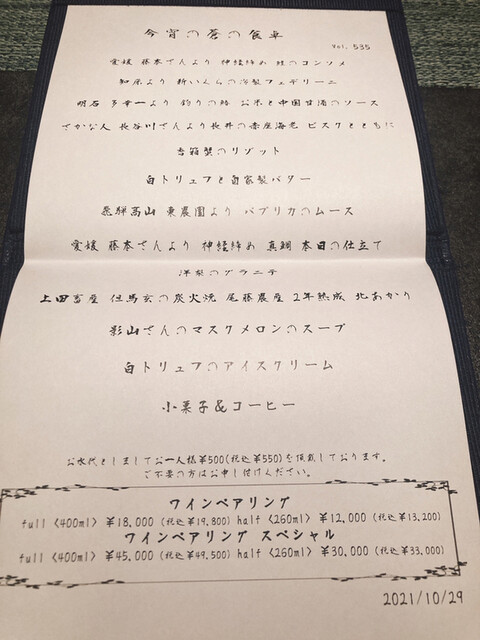 今宵の蒼の食卓
Vol. 535
愛媛 藤本さんより 神経締め 鮭のコンソメ
知床より 新いくらの冷製フェデリーニ
明石 多幸一より 釣りの鰆 お米と中国甘酒のソース
さかな人 長谷川さんより長井の赤座海老 ビスクとともに
香箱蟹のリゾット
白トリュフと自家製バター
飛騨高山 東農園より パプリカのムース
愛媛 藤本さんより 神経締め 真鯛 本日の仕立て
洋梨のグラニテ
上田畜産 但馬玄の炭火焼 尾藤農産 2年熟成 北あかり
影山さんのマスクメロンのスープ
白トリュフのアイスクリーム
小菓子&コーヒー
お水代としましてお一人様¥500(税込¥550)を頂戴しております。
ご不要の方はお申し付けください。
ワインペアリング
full 〈400ml〉 ¥18,000 (税込¥19,800) half 〈260ml〉 ¥12,000 (税込¥13,200)
ワインペアリング スペシャル
full 〈400ml〉 ¥45,000 (税込¥49,500) half 〈260ml〉 ¥30,000 (税込¥33,000)
2021/10/29